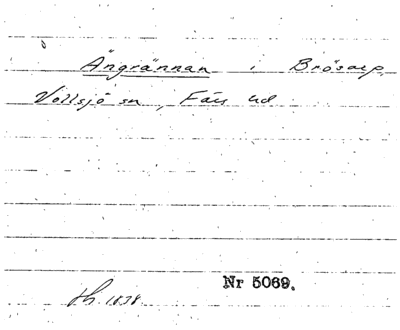 Ängrännan i Brösarp,
Vollsjö sn, Färs hd
Nr 5069.